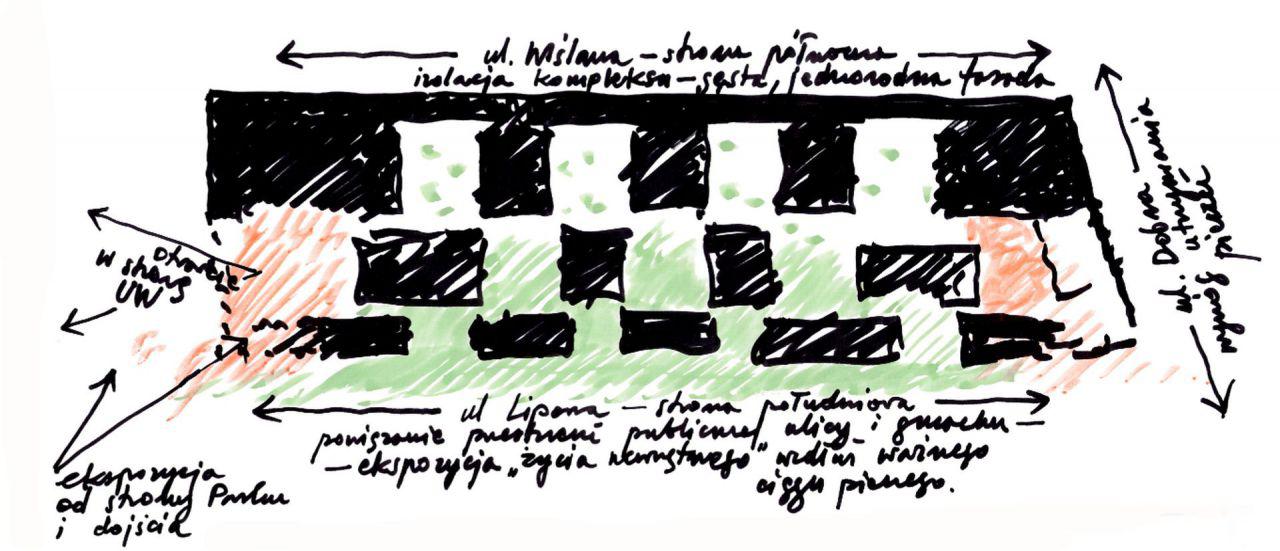 ul. Wiślana – strona północna
izolacja kompleksu – gęsta, jednorodna fasada
ul. Dobra –
utrzymania
wymóg pierzei
otwarcie
w stronę
UW
ul Lipowa – strona południowa
powiązanie przestrzeni publicznej ulicy i gmachu –
– ekspozycja „życia wewnętrznego" wzdłuż ważnego
ciągu pieszego.
ekspozycja
od strony Parku
i dojścia